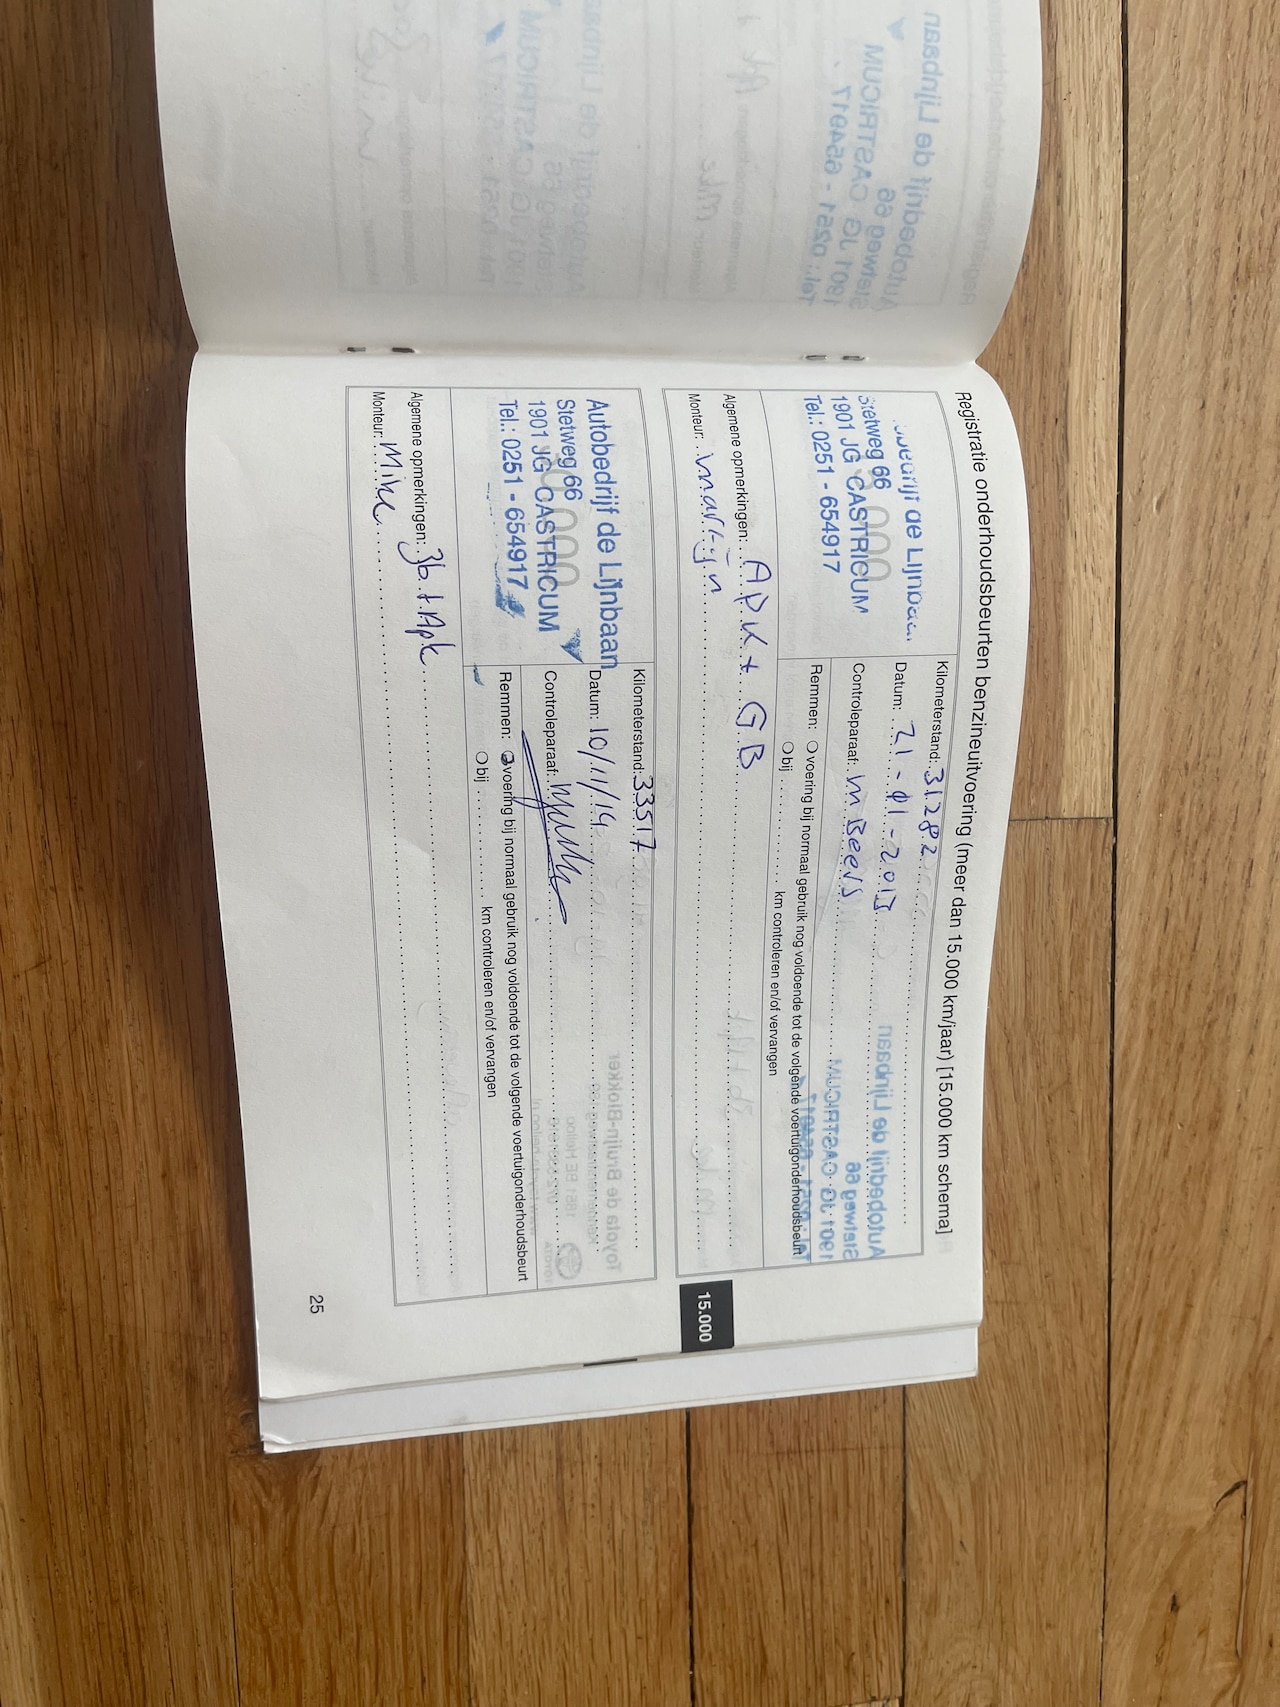 Registratie onderhoudsbeurten benzineuitvoering (meer dan 15.000 km/jaar) [15.000 km schema]
de Lijnbaan
Stetweg 66
1901 JG CASTRICUM
Tel.: 0251 - 654917
Kilometerstand: 31282
Datum: 21-01-2013
Controleparaaf: M Beers
Remmen: voering bij normaal gebruik nog voldoende tot de volgende voertuigonderhoudsbeurt
bij km controleren en/of vervangen
Algemene opmerkingen: APK + GB
Monteur: Martijn
15.000
Autobedrijf de Lijnbaan
Stetweg 66
1901 JG CASTRICUM
Tel.: 0251 - 654917
Kilometerstand: 33517
Datum: 10/11/14
Controleparaaf:
Remmen: voering bij normaal gebruik nog voldoende tot de volgende voertuigonderhoudsbeurt
bij km controleren en/of vervangen
Algemene opmerkingen: Gb + Apk
Monteur: Mike
25